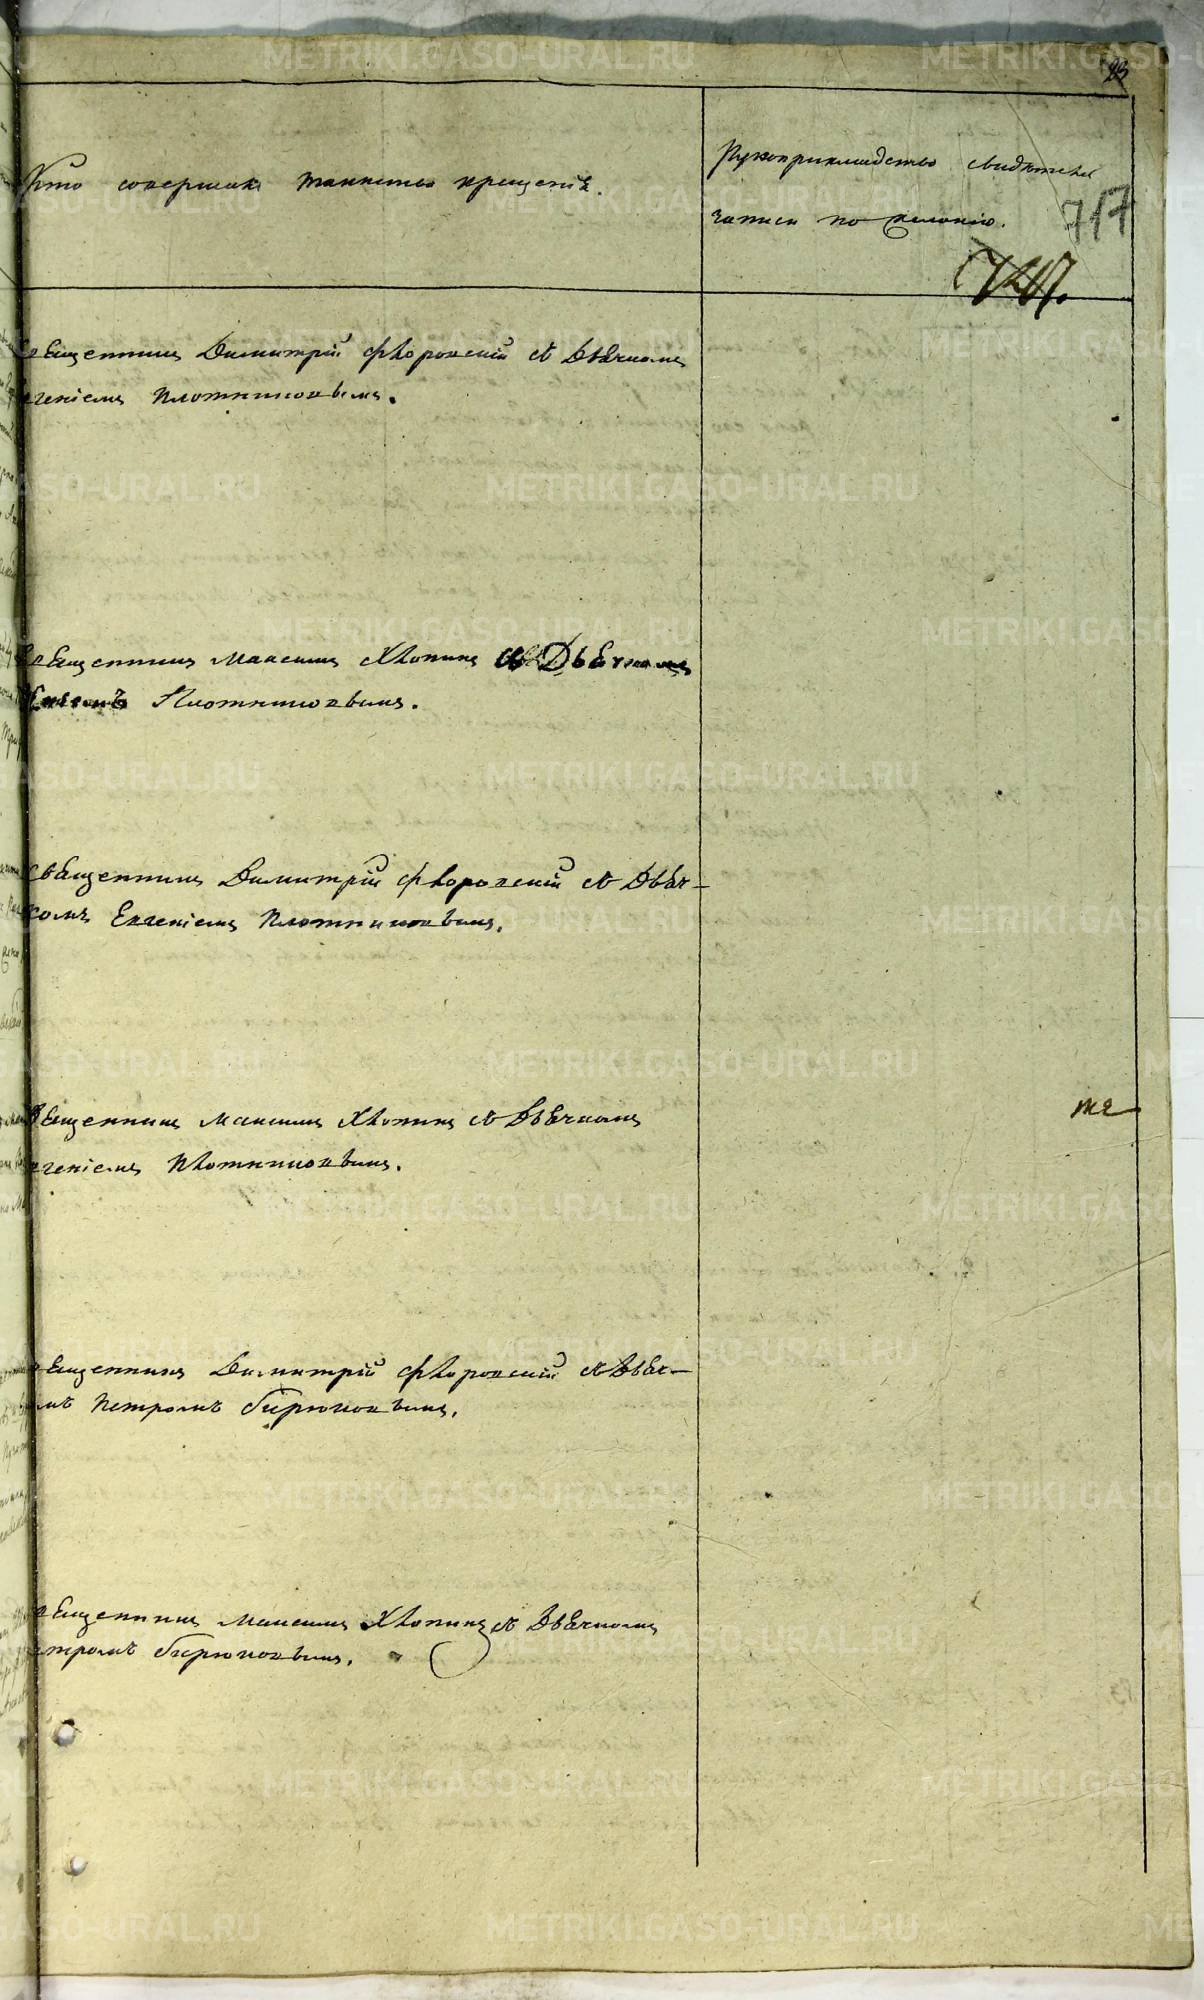 23
Кто совершалъ таинство крещенія.
Рукоприкладство свидѣтелей
записи по желанію.
717
Священникъ Димитрій Флоровскій съ Дьячкомъ
Евгеніемъ Плотниковымъ.
Священникъ Максимъ Хлопинъ съ Дьячкомъ
Плотниковымъ.
Священникъ Димитрій Флоровскій съ Дьяч-
комъ Евгеніемъ Плотниковымъ.
Священникъ Максимъ Хлопинъ съ Дьячкомъ
Евгеніемъ Плотниковымъ.
Священникъ Димитрій Флоровскій съ Дьяч-
комъ Петромъ Бирюковымъ.
Священникъ Максимъ Хлопинъ съ Дьячкомъ
Петромъ Бирюковымъ.
METRIKI.GASO-URAL.RU